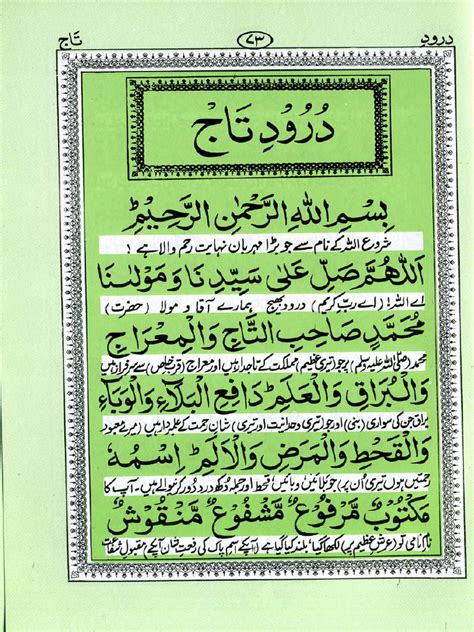 درود ۷۳ تاج
دُرُوْدِ تَاجْ
بِسْمِ اللهِ الرَّحْمٰنِ الرَّحِيْمِ
شروع اللہ کے نام سے جو بڑا مہربان نہایت رحم والا ہے !
اَللّٰهُمَّ صَلِّ عَلٰى سَيِّدِنَا وَمَوْلٰىنَا
اے اللہ! (اے ربِّ کریم) درود بھیج ہمارے آقا و مولا (حضرت)
مُحَمَّدٍ صَاحِبِ التَّاجِ وَالْمِعْرَاجِ
محمد (صلی اللہ علیہ وسلم) پر جو (تیری عظیم) مملکت کے تاجدار ہیں اور معراج (قربِ خاص) سے سرفراز ہیں
وَالْبُرَاقِ وَالْعَلَمِ دَافِعِ الْبَلَآءِ وَالْوَبَآءِ
براق جن کی سواری (بنی) اور جو (تیری) وحدانیت اور تیری) شانِ رحمت کے علمبردار ہیں (میرے معبود
وَالْقَحْطِ وَالْمَرَضِ وَالْاَلَمِ اِسْمُهٗ
رحمتیں ہوں تیری اُن پر) جو بلائیں وبائیں قحط اور دکھ درد دور کرنیوالے ہیں۔ آپ کا
مَكْتُوْبٌ مَّرْفُوْعٌ مَّشْفُوْعٌ مَّنْقُوْشٌ
نام نامی تو (عرشِ عظیم پر) لکھا گیا، بلند کیا گیا ہے (آپکے اسمِ پاک کی رفعتِ شان آپکے) مقبول شفاعت